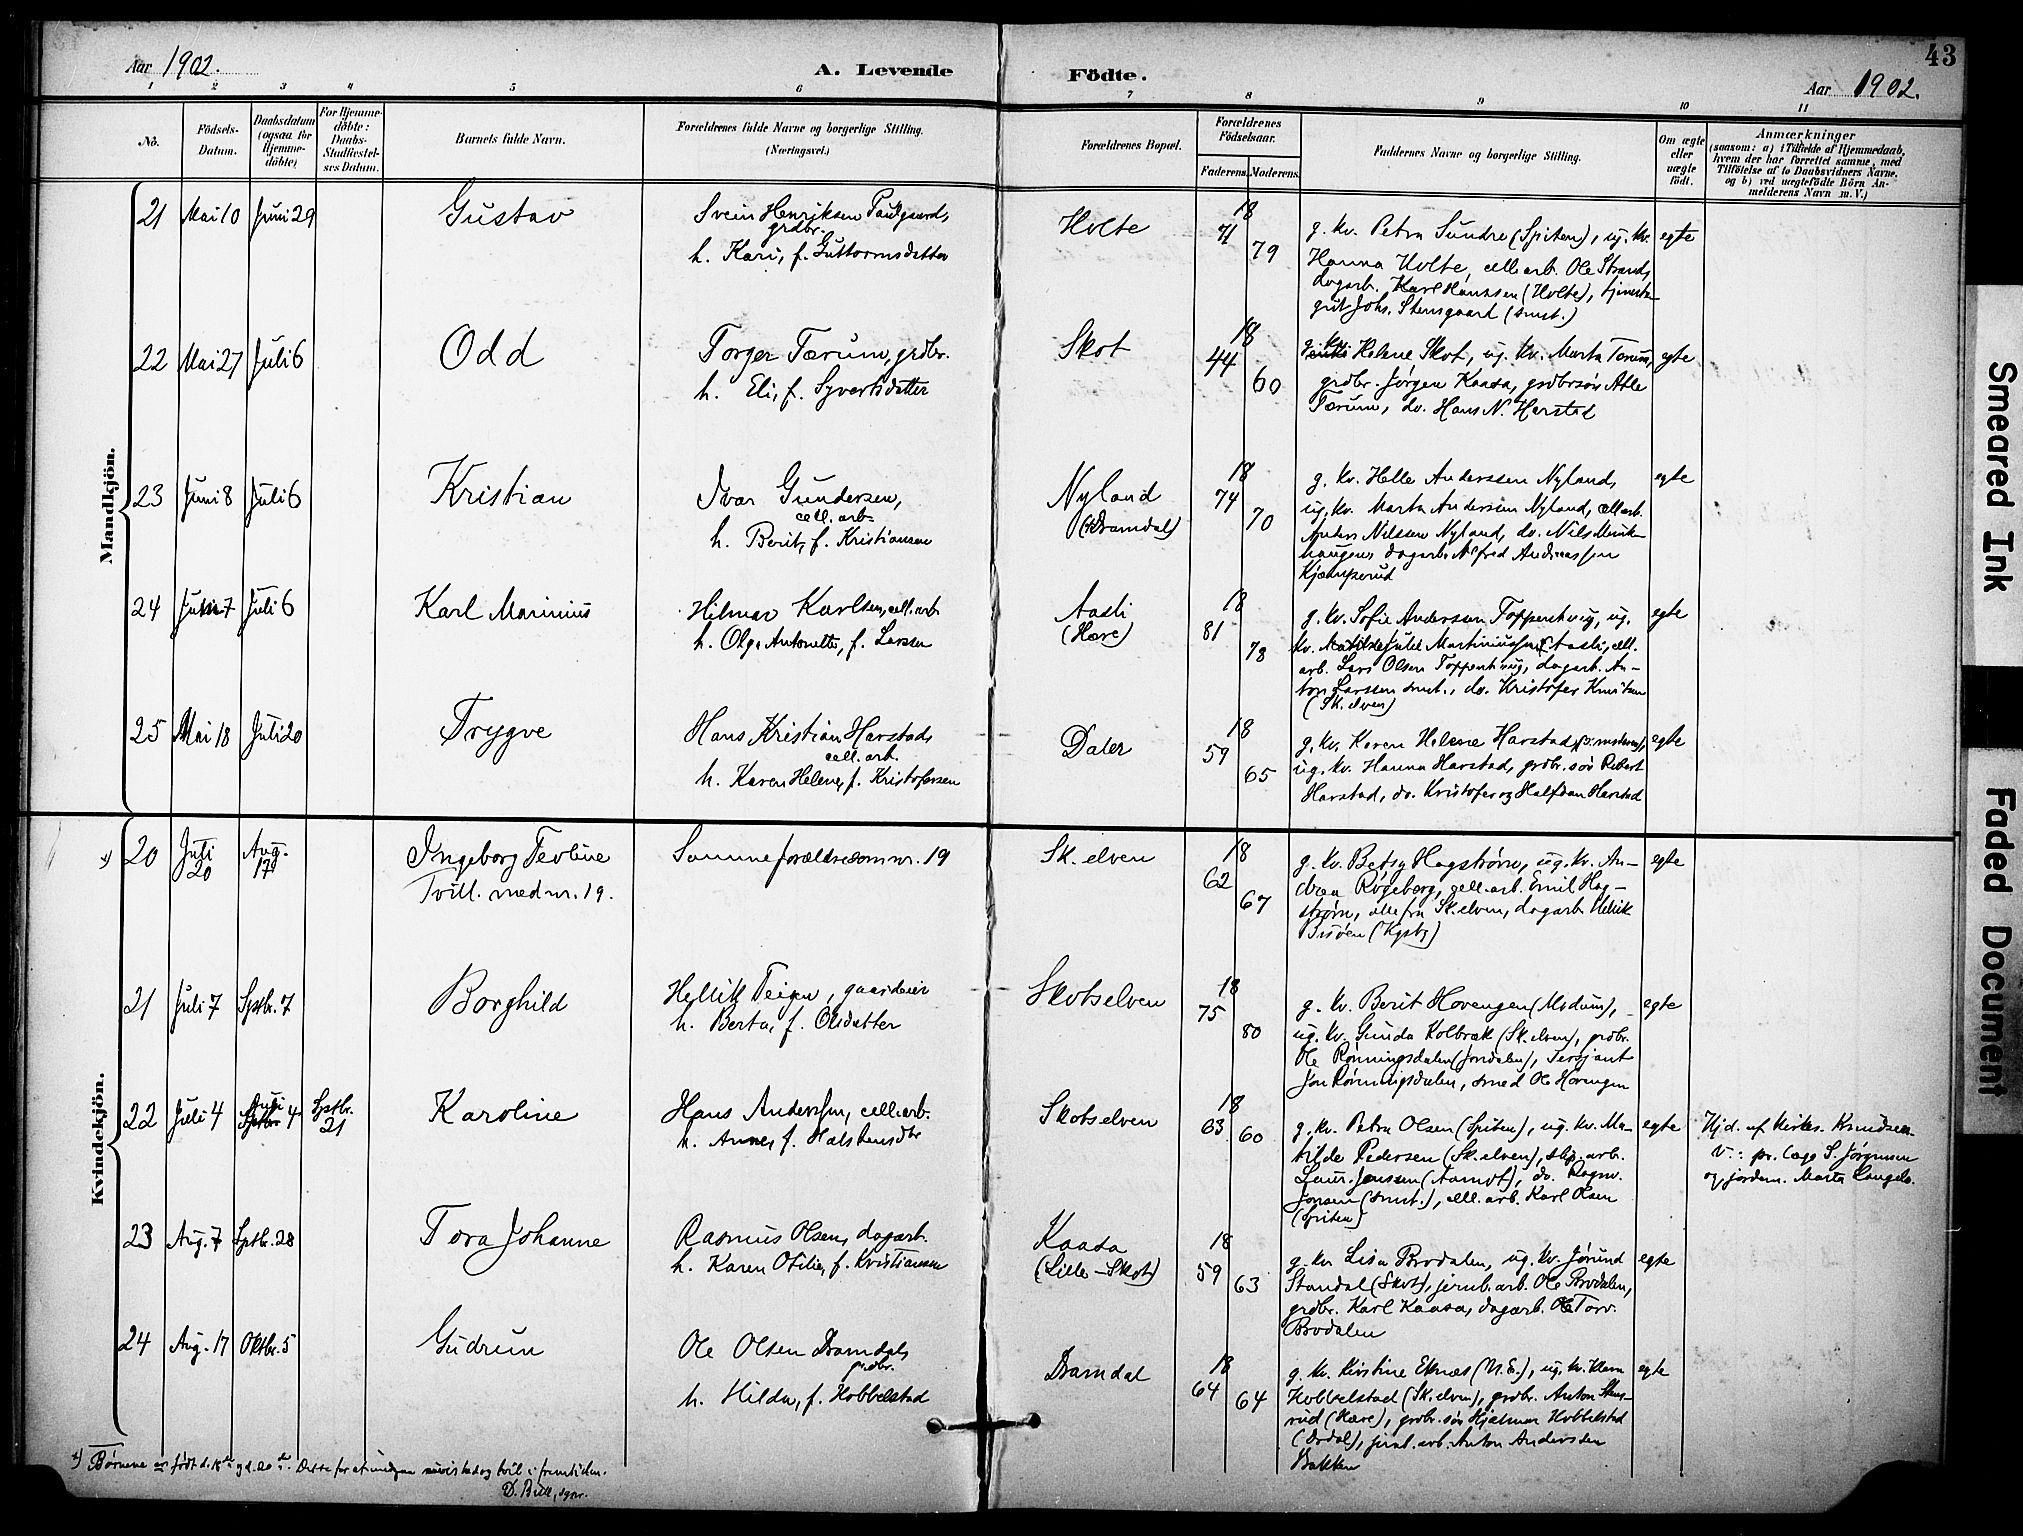 43
Aar 1902.
A. Levende
Födte.
Aar 1902.
1 2 3 4 5 6 7 8 9 10 11
No.
Födsels-Datum.
Daabsdatum (ogsaa for Hjemme-döbte)
For Hjemme-döbte: Daabs-Stadfæstel-ses Datum.
Barnets fulde Navn.
Forældrenes fulde Navne og borgerlige Stilling.
(Næringsvei.)
Forældrenes Bopæl.
Forældrenes Födselsaar.
Faderens. Moderens.
Faddernes Navne og borgerlige Stilling.
Om ægte eller uægte födt.
Anmærkninger
(saasom: a) i Tilfælde af Hjemmedaab,
hvem der har forrettet samme, med
Tilföielse af to Daabsvidners Navne,
og b) ved uægtefödte Börn An-
melderens Navn m.V.)
Mandkjön.
21 Mai 10 Juni 29 Gustav
Svein Henriksen Paulsgaard,
grdbr.
h. Kari, f. Guttormsdatter
Holte
18
71
79
g. kv. Petra Sundre (Spiten), ug. kv.
Hanna Holte, cell.arb. Ole Strand,
dagarb. Karl Hanssen (Holte), tjeneste-
gut Johs. Stensgaard (smst.)
egte
22 Mai 27 Juli 6 Odd
Torger Tærum, grdbr.
h. Eli, f. Syvertsdatter
Skot
18
44
60
Helene Skot, ug. kv. Marta Tærum,
grdbr. Jørgen Kaasa, grdbrsøn Atle
Tærum, do. Hans N. Harstad
egte
23 Juni 8 Juli 6 Kristian
Ivar Gundersen,
cell. arb.
h. Berit, f. Kristiansen
Nyland
(Dramdal)
18
74
70
g. kv. Helle Anderssen Nyland,
ug. kv. Marta Andersen Nyland, cell.arb.
Anders Nilsen Nyland, do. Nils Munk-
haugen, dagarb. Alfred Andreassen
Kjæmperud
egte
24 Juni 7 Juli 6 Karl Marinius
Hilmar Karlsen, cell. arb.
h. Olga Antonette, f. Larsen
Aasli
(Hære)
18
81
78
g. kv. Sofie Andersen Toppenhaug, ug.
kv. Matilde Julie Martiniussen Aasli, cell.
arb. Lars Olsen Toppenhaug, dagarb. An-
ton Larssen smst., do. Kristofer Knutsen
(Sk.elven)
egte
25 Mai 18 Juli 20 Trygve
Hans Kristian Harstad,
cell. arb.
h. Karen Helene, f. Kristofersen
Daler
18
59
65
g. kv. Karen Helene Harstad,
ug. kv. Hanna Harstad, grdbr. søn Robert
Harstad, do. Kristofer og Halfdan Harstad
egte
Kvindekjön.
x) 20 Juli 20 Aug. 17 Ingeborg Teoline
Tvill. med nr. 19.
Samme forældre som nr. 19
Sk. elven
18
62
67
g. kv. Betsy Hagstrøm, ug. kv. An-
drea Røgeberg, cell. arb. Emil Hag-
strøm, alle fra Sk.elven, dagarb. Henrik
Bruen (Kgsbg)
egte
21 Juli 7 Sptbr. 7 Borghild
Hellik Teigen, gaardeier
h. Berta, f. Olsdatter
Skotselven
18
75
80
g. kv. Berit Hovengen (Modum),
ug. kv. Gunda Kolbræk (Sk.elven), grdbr.
Ole Rønningsdalen (Jondalen), Sersjant
Jon Rønningsdalen, smed Ole Hovengen
egte
22 Juli 4 Juli 4 Sptbr. 21 Karoline
Hans Anderssen, cell.arb.
h. Anne, f. Halstensdtr
Skotselven
18
63 60
g. kv. Petra Olsen (Spiten), ug. kv. Ma-
tilde Pedersen (Sk.elven), slip. arb.
Laur. Jenssen (Aamot), do. Ragnv.
Jonsen (smst.), cell. arb. Karl Olsen
(Spiten)
egte
Hjd. af kirkes. Knudsen.
V.: pr. Læge S. Jørgensen
og jordem. Marta
23 Aug. 7 Sptbr. 28 Tora Johanne
Rasmus Olsen, dagarb.
h. Karen Otilie, f. Kristiansen
Kaasa
(Lille-Skot)
18
59
63
g. kv. Lisa Brodalen, ug. kv. Jørund
Standal (Skot), jernb. arb. Ole Brodalen,
grdbr. Karl Kaasa, dagarb. Ole Torv.
Brodalen
egte
24 Aug. 17 Oktbr. 5 Gudrun
Ole Olsen Dramdal,
grdbr.
h. Hilda, f. Hobbelstad
Dramdal
18
64
64
g. kv. Kirstine Eknæs (N.E.), ug. kv. Klara
Hobbelstad (Sk.elven), grdbr. Anton Stens-
rud (Hære), grdbr. søn Hjalmar Hobbelstad
jernb. arb. Anton Anderssen
Bakken
egte
x) Børnene er født d. 18de og d. 20de. Dette for at undgaa mistydning
tvil i fremtiden.
D. Bull, sgpr.
Smeared Ink
Faded Document